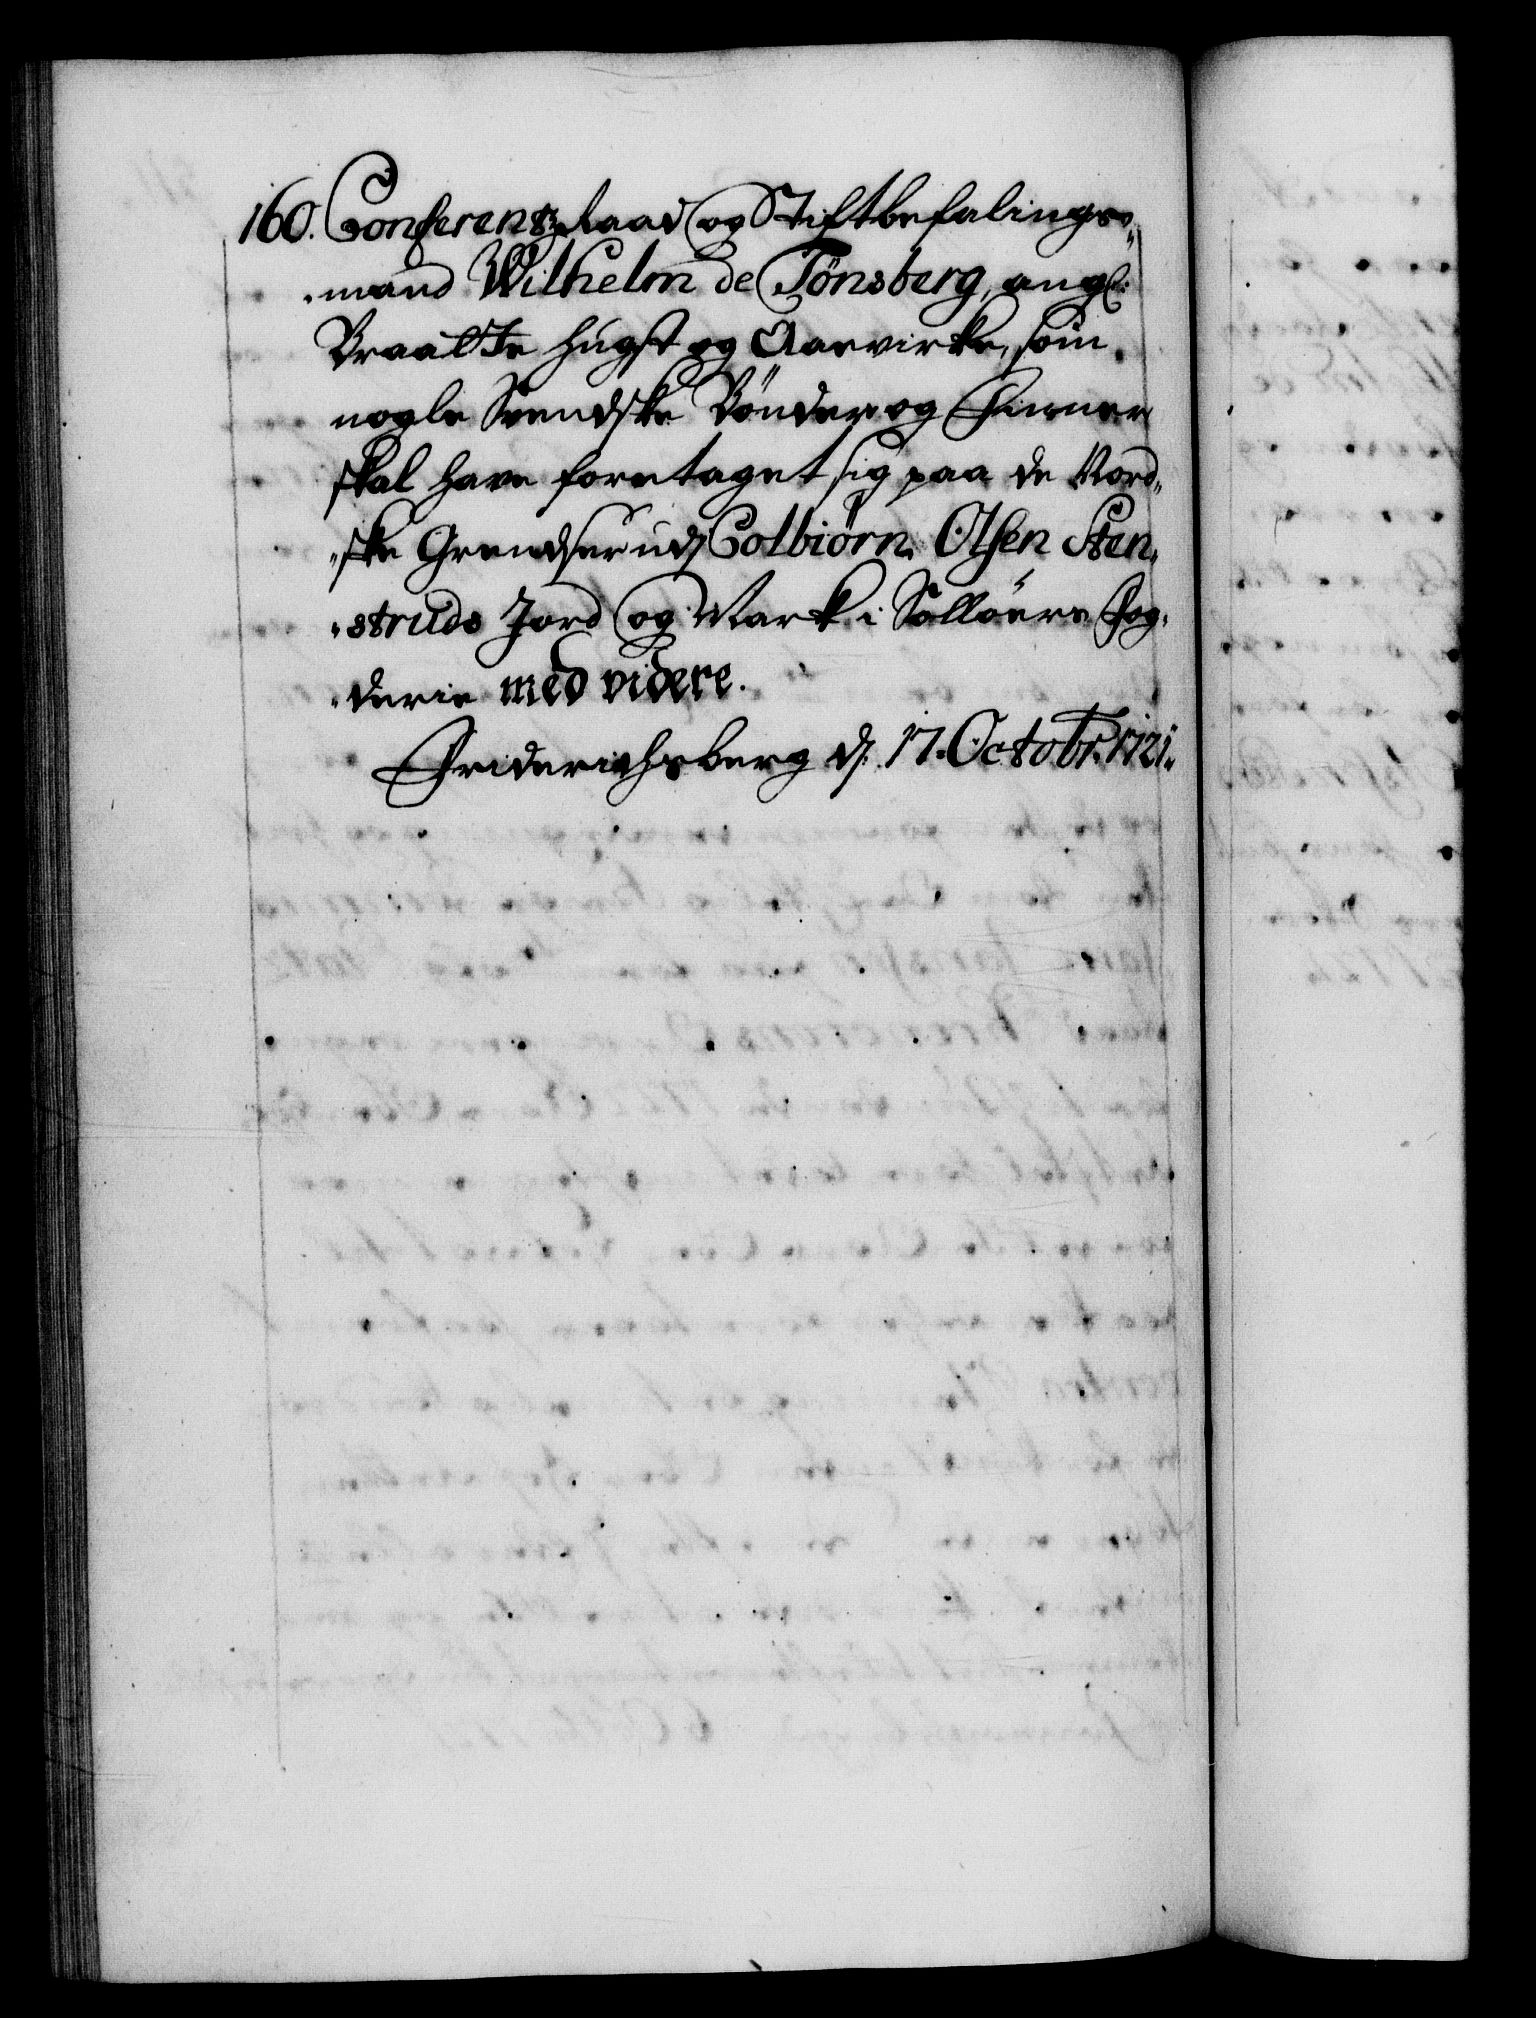 160. Conferentz Raad og Stiftbefalings„
„mand Wilhelm de Tönsberg, angl:
Braatte Hugst og Aavirke, som
nogle Svendske Bönder og Finner
skal have foretaget sig paa de Nord„
„ske Grendser udj Colbiörn Olsen Sten„
„struds Jord og Mark i Sollöers Fog„
„derie med videre.
Friderichsberg d. 17. Octobr. 1721.